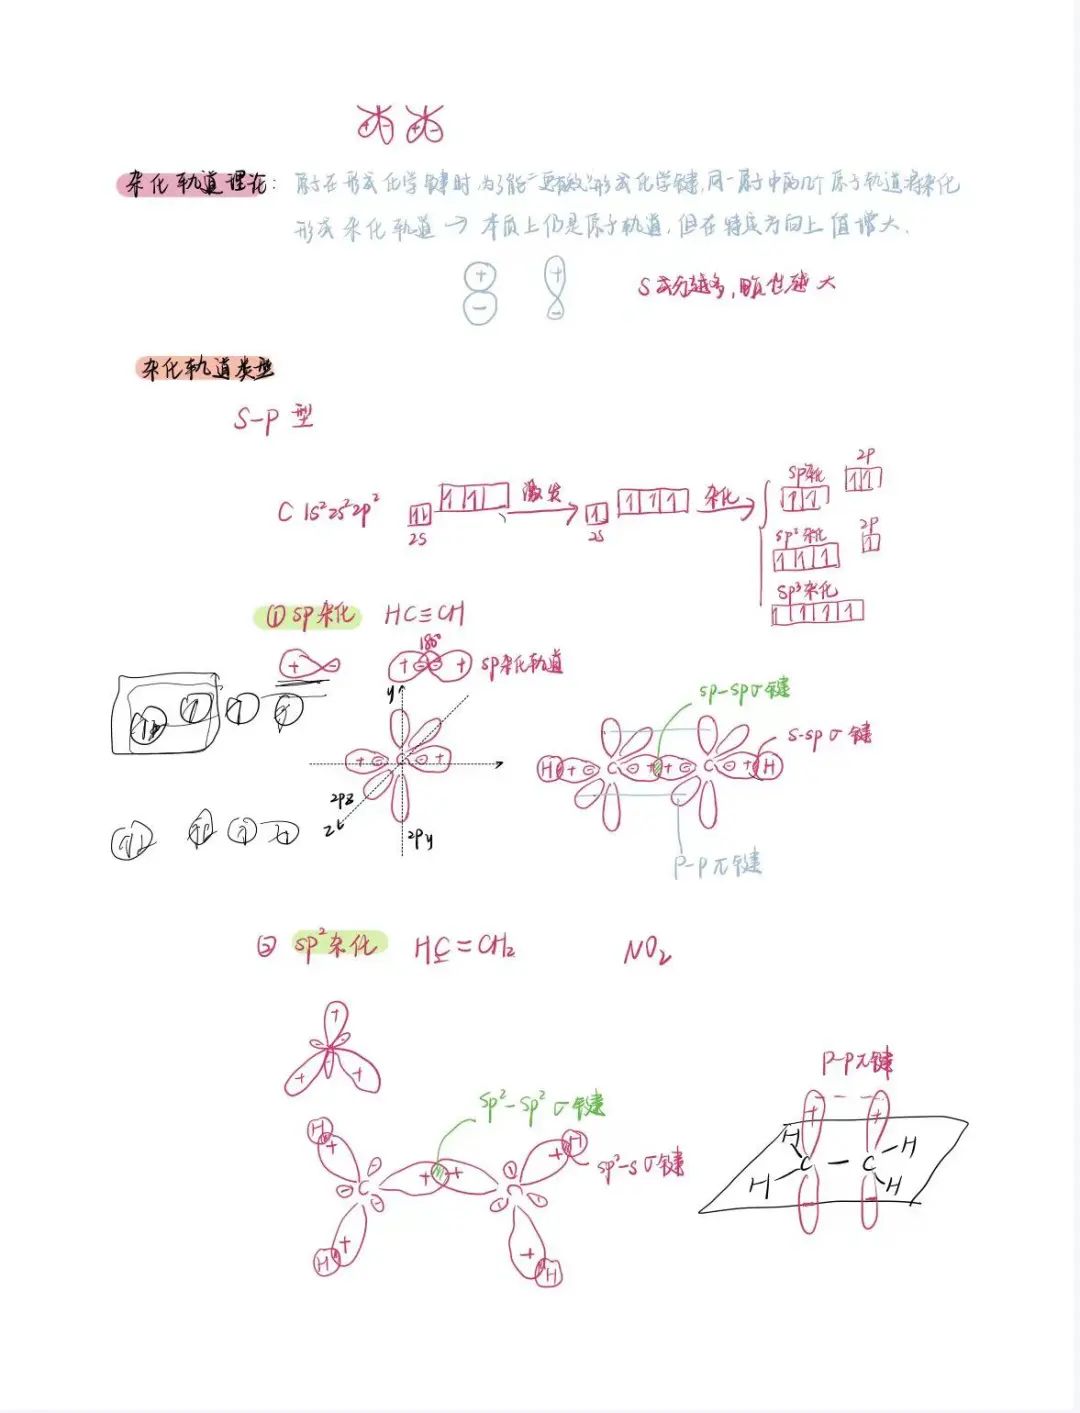 杂化轨道理论：原子在形成化学键时，为了能“更有效”形成化学键，同一原子中的几个原子轨道将杂化
形成杂化轨道 → 本质上仍是原子轨道，但在特定方向上值增大.
S成分越多，电负性越大
杂化轨道类型
S-P 型
C 1s²2s²2p²
2s
激发
2s
杂化
sp杂化
2p
sp²杂化
2p
sp³杂化
① sp杂化 HC≡CH
180°
sp杂化轨道
y
2pz
z
2py
sp-spσ键
s-spσ键
H C C H
p-pπ键
② sp²杂化 H₂C=CH₂ NO₂
sp²-sp²σ键
sp²-sσ键
H H
C C
H H
p-pπ键
H H
C - C
H H